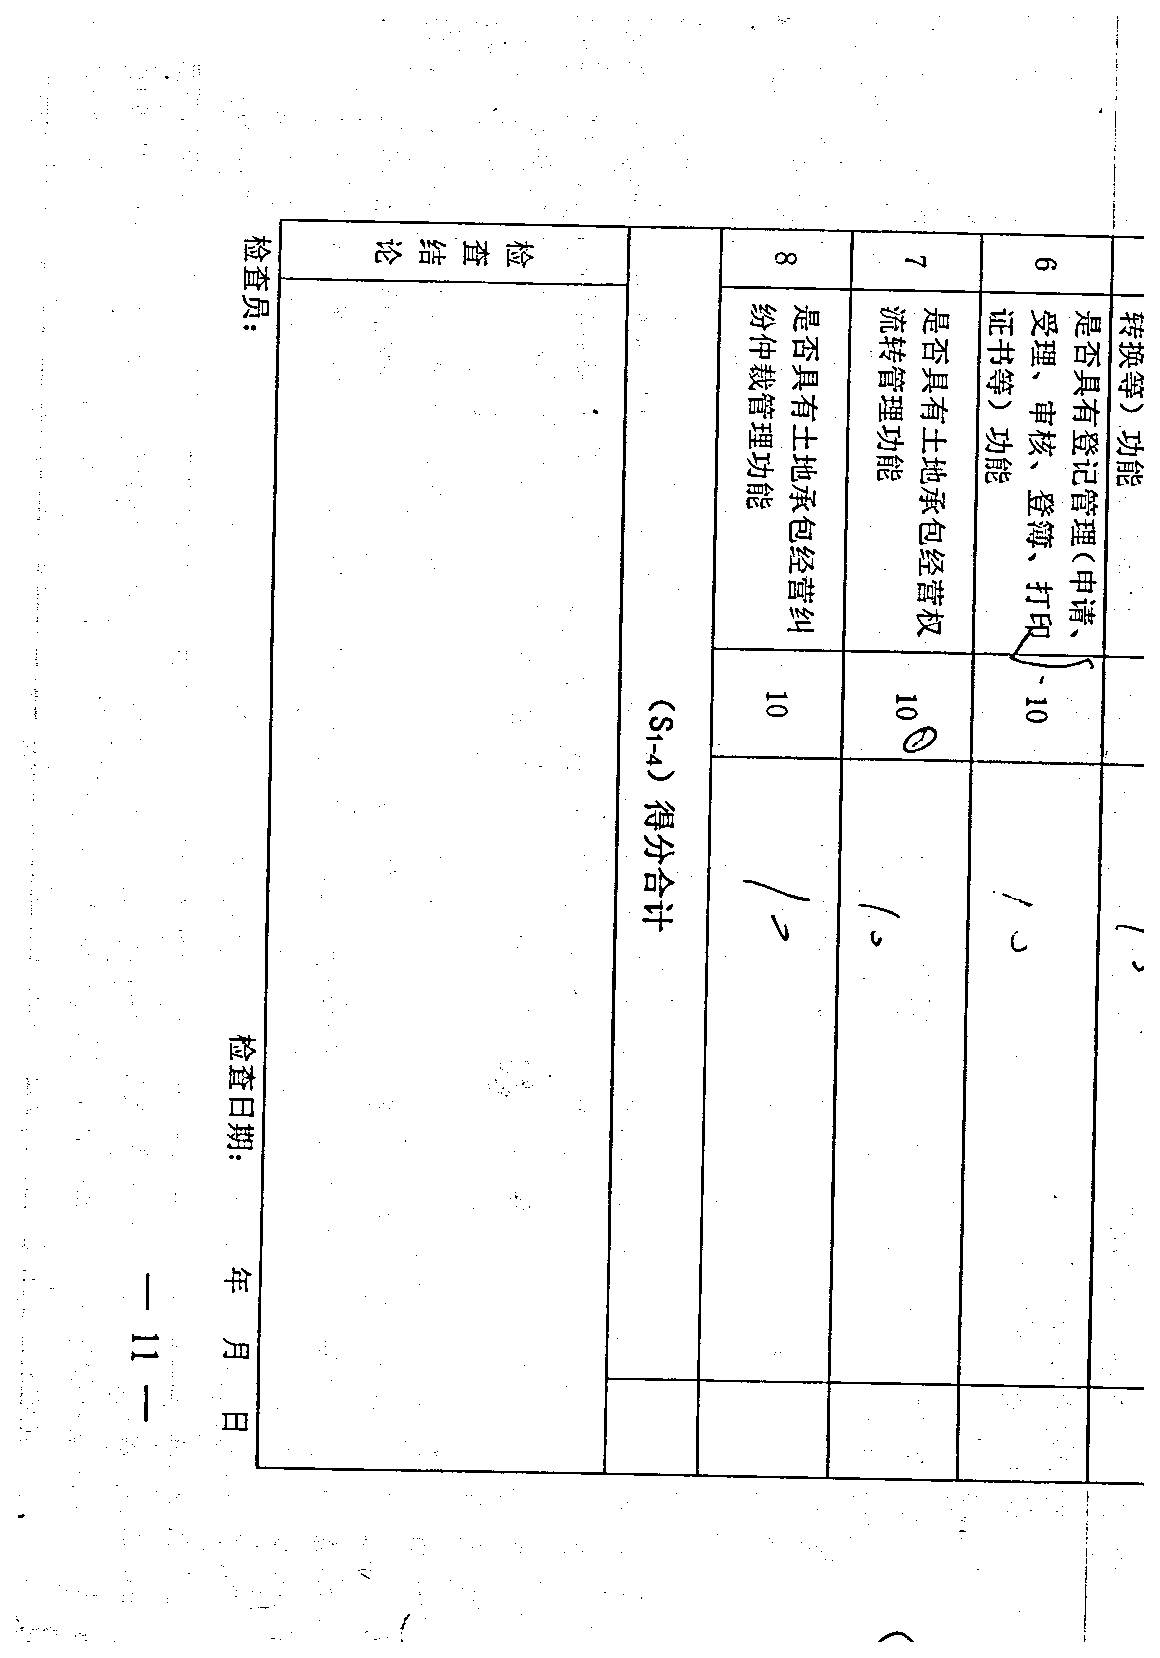 转换等）功能
10
6
是否具有登记管理（申请、
受理、审核、登簿、打印
证书等）功能
10
10
7
是否具有土地承包经营权
流转管理功能
10
10
8
是否具有土地承包经营纠
纷仲裁管理功能
10
10
（S1-4）得分合计
检查结论
检查员：
检查日期：
年 月 日
— 11 —